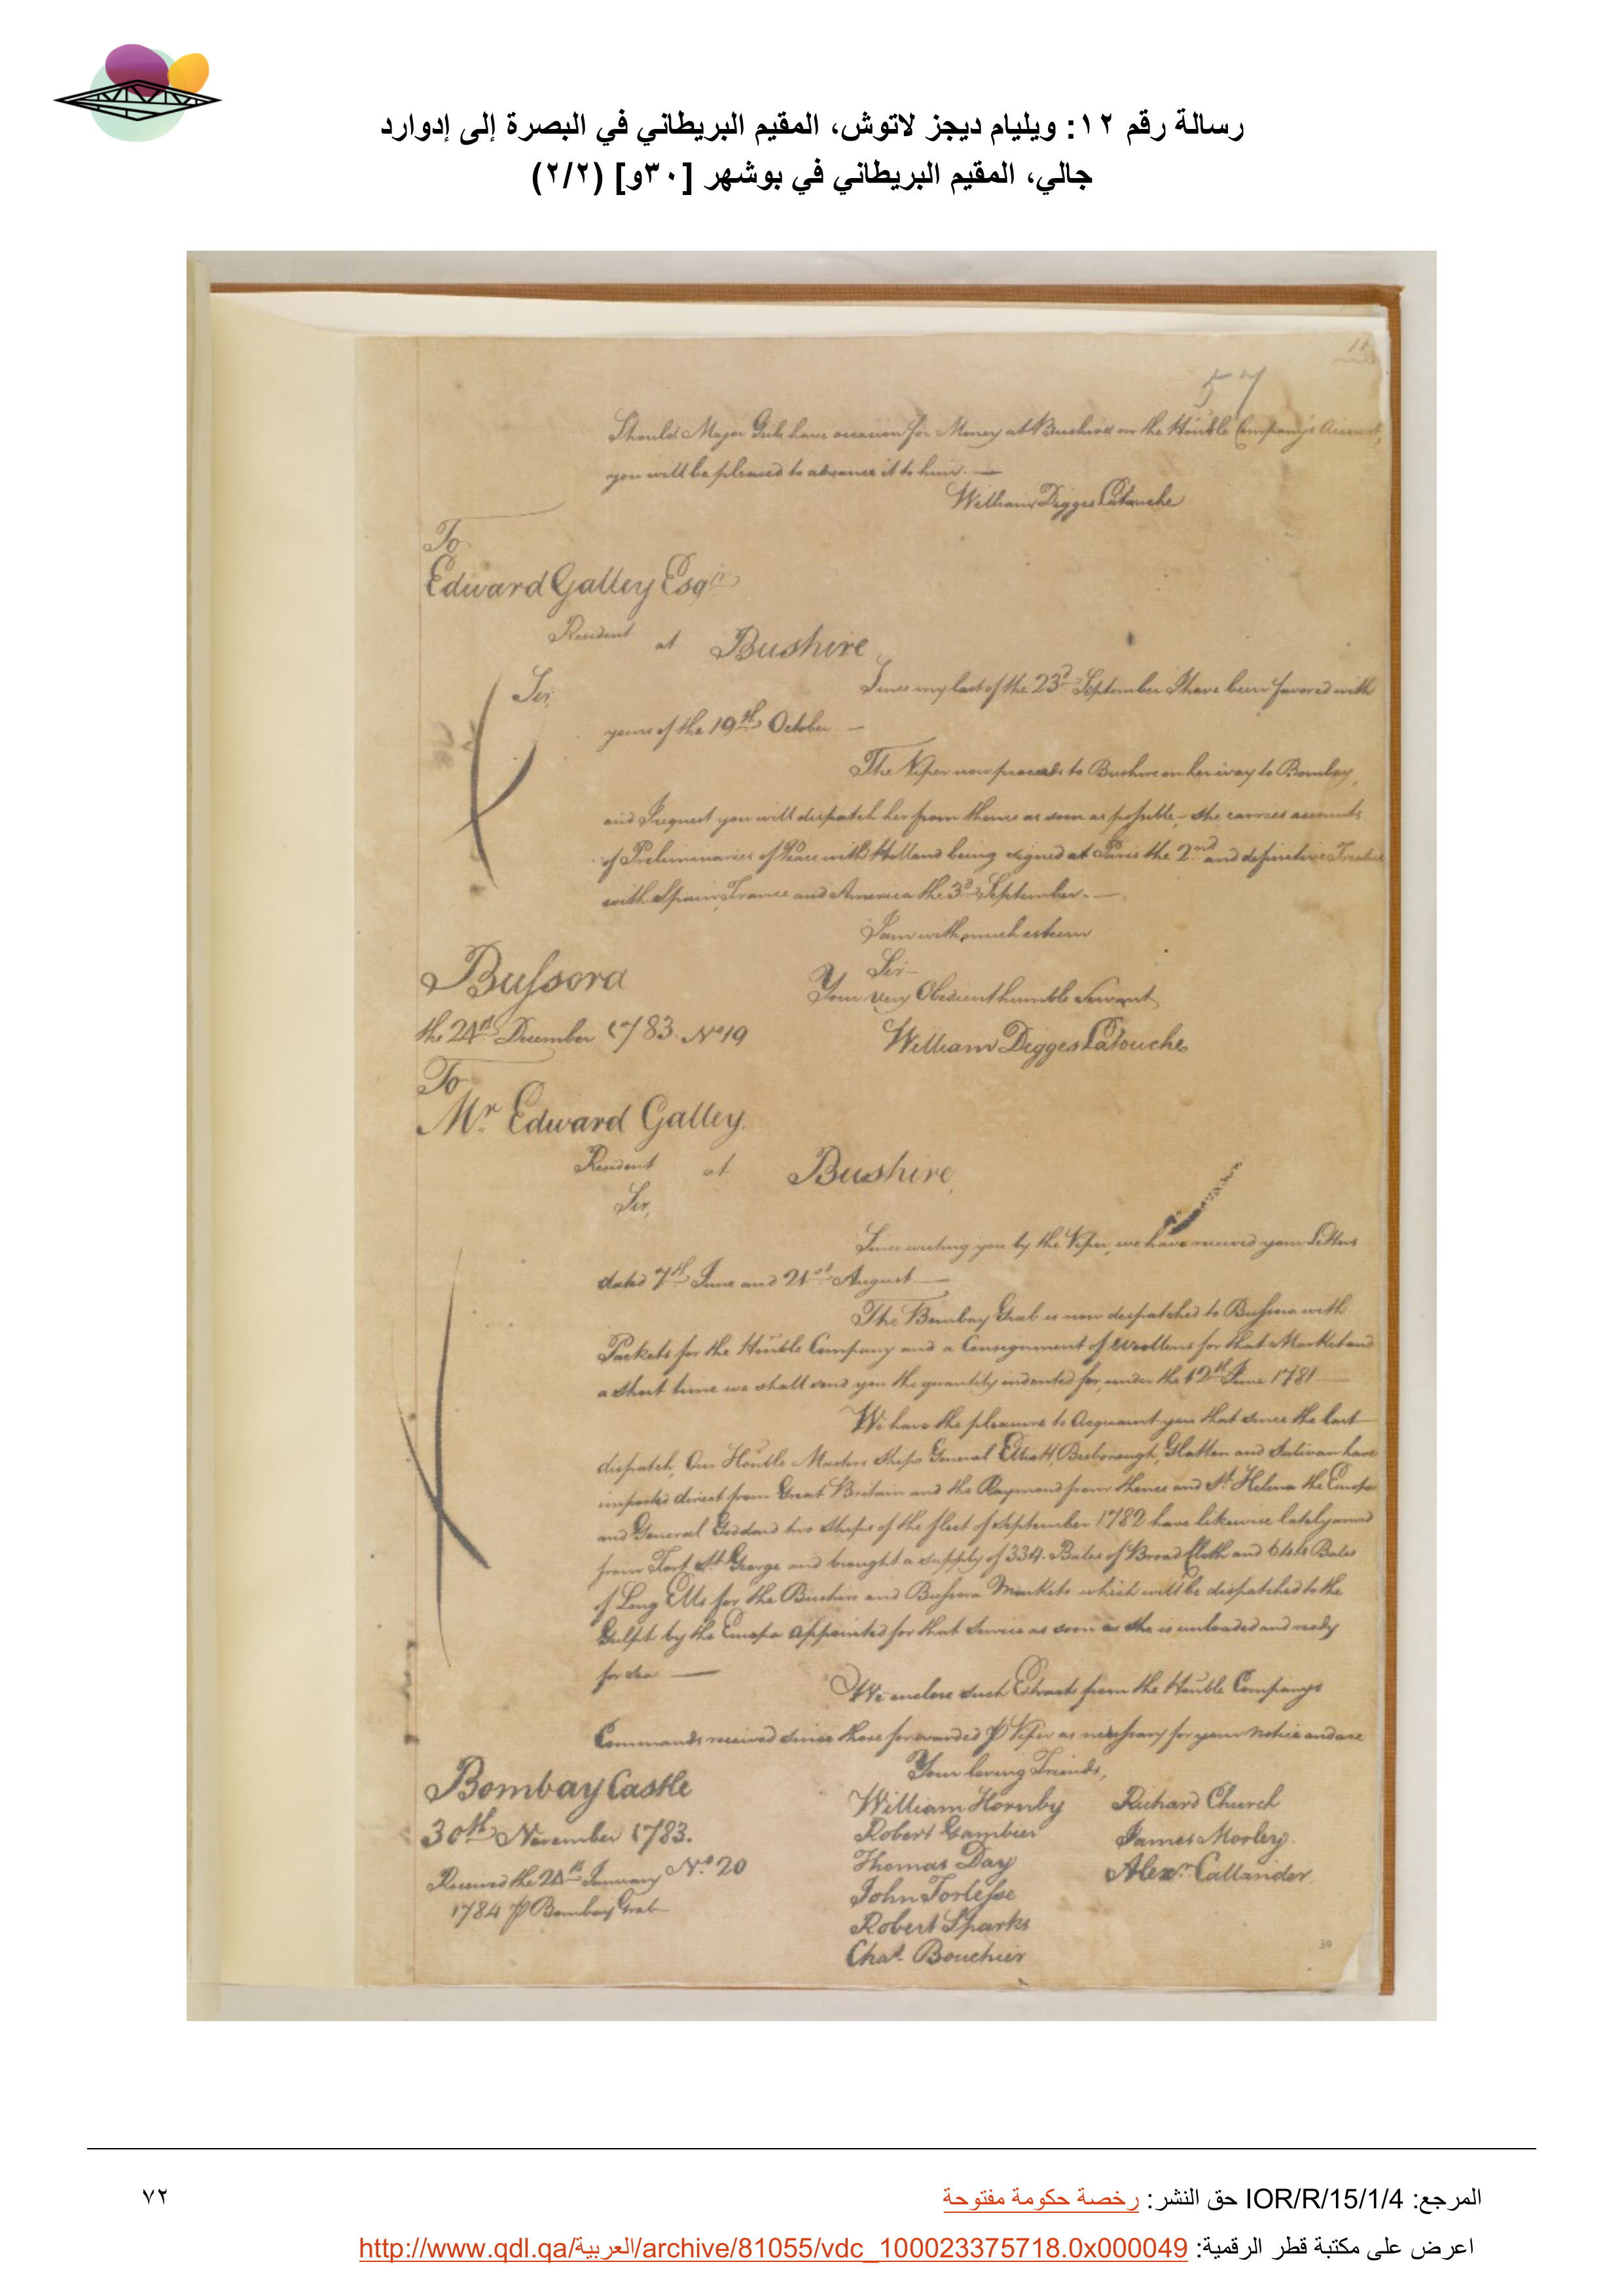 رسالة رقم ١٢: ويليام ديجز لاتوش، المقيم البريطاني في البصرة إلى إدوارد
جالي، المقيم البريطاني في بوشهر [٣٠و] (٢/٢)
11
57
Should Major Geils have occasion for Money at Bushire on the Honble Company's Account,
you will be pleased to advance it to him. —
William Digges Latouche
To
Edward Galley Esqr
Resident at Bushire
Sir,
Since my last of the 23d September I have been favored with
yours of the 19th October —
The Viper now proceeds to Bushire on her way to Bombay,
and I request you will dispatch her from thence as soon as possible, she carries accounts
of Preliminaries of Peace with Holland being signed at Paris the 2nd and definitive Treaties
with Spain, France and America the 3d September. —
I am with much esteem
Sir
Your very Obedient humble Servant,
Bussora
the 24th December 1783. No 19
William Digges Latouche
To
Mr Edward Galley.
Resident at Bushire,
Sir,
Since writing you by the Viper, we have received your Letters
dated 7th June and 21st August —
The Bombay Grab is now despatched to Bussora with
Packets for the Honble Company and a Consignment of Woollens for that Market and
a short time we shall send you the quantity indented for, under the 12th June 1781 —
We have the pleasure to Acquaint you that since the last
dispatch, Our Honble Masters Ships General Elliott, Besborough, Hatton and Sulivan have
imported direct from Great Britain and the Raymond from thence and St Helena the Europa
and General Goddard two Ships of the fleet of September 1782 have likewise lately arrived
from Fort St George and brought a supply of 334. Bales of Broad Cloth and 644 Bales
of Long Ells for the Bushire and Bussora Markets which will be dispatched to the
Gulph by the Europa appointed for that Service as soon as she is unloaded and ready
for Sea —
We enclose such Extracts from the Honble Companys
Commands received since those forwarded ⅌ Viper as necessary for your notice and are
Your loving Friends,
Bombay Castle
30th November 1783.
Received the 24th January No. 20
1784 ⅌ Bombay Grab
William Hornby
Robert Gambier
Thomas Day
John Torlesse
Robert Sparks
Chas. Bouchier
Richard Church
James Morley.
Alexr. Callander
30
المرجع: IOR/R/15/1/4 حق النشر: رخصة حكومة مفتوحة
٧٢
اعرض على مكتبة قطر الرقمية: http://www.qdl.qa/العربية/archive/81055/vdc_100023375718.0x000049